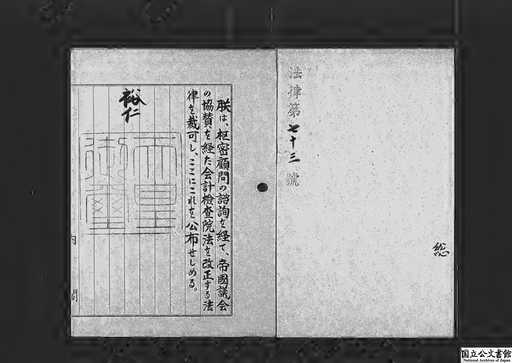 法律第七十三號
総
朕は、枢密顧問の諮詢を経て、帝國議会
の協賛を経た会計檢査院法を改正する法
律を裁可し、ここにこれを公布せしめる。
裕仁
天皇御璽
内閣
国立公文書館
National Archives of Japan